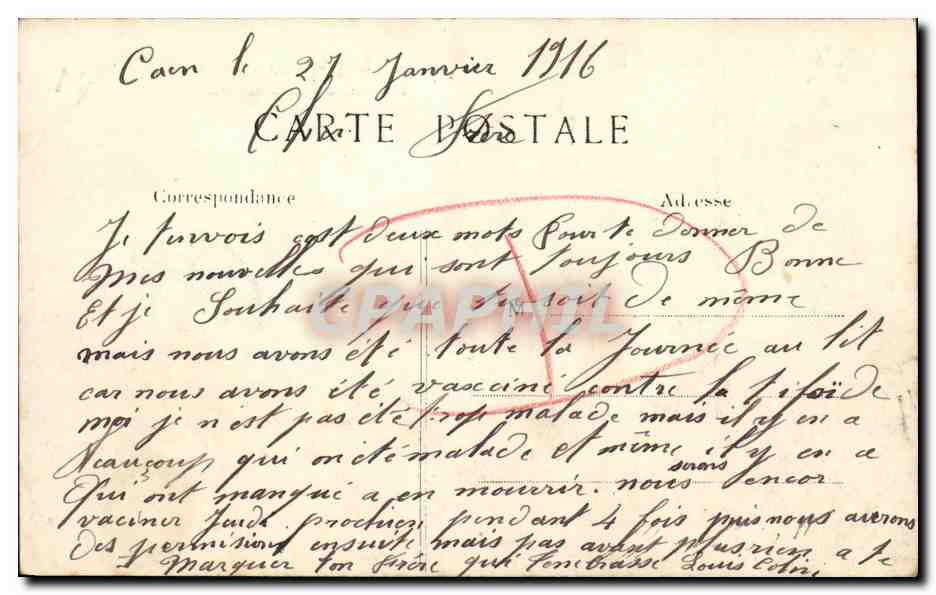 Caen le 27 Janvier 1916
CARTE POSTALE
Cher Frère
Correspondance Adresse
Je tenvois cest deux mots Pour te donner de
mes nouvelles qui sont toujours Bonne
Et je Souhaite que toi soit de même
M
CPAPHIL
mais nous avons été toute la Journée au lit
car nous avons été vacciné contre la tifoïde
moi je n'est pas été trop malade mais il y en a
Beaucoup qui on été malade et même il y en a
Qui ont manqué a en mourrir. nous serons encor
vacciner Jeudi prochien pendant 4 fois puis nous averons
des permision ensuite mais pas avant plusrien a te
Marquer ton Frère qui tembrasse Louis